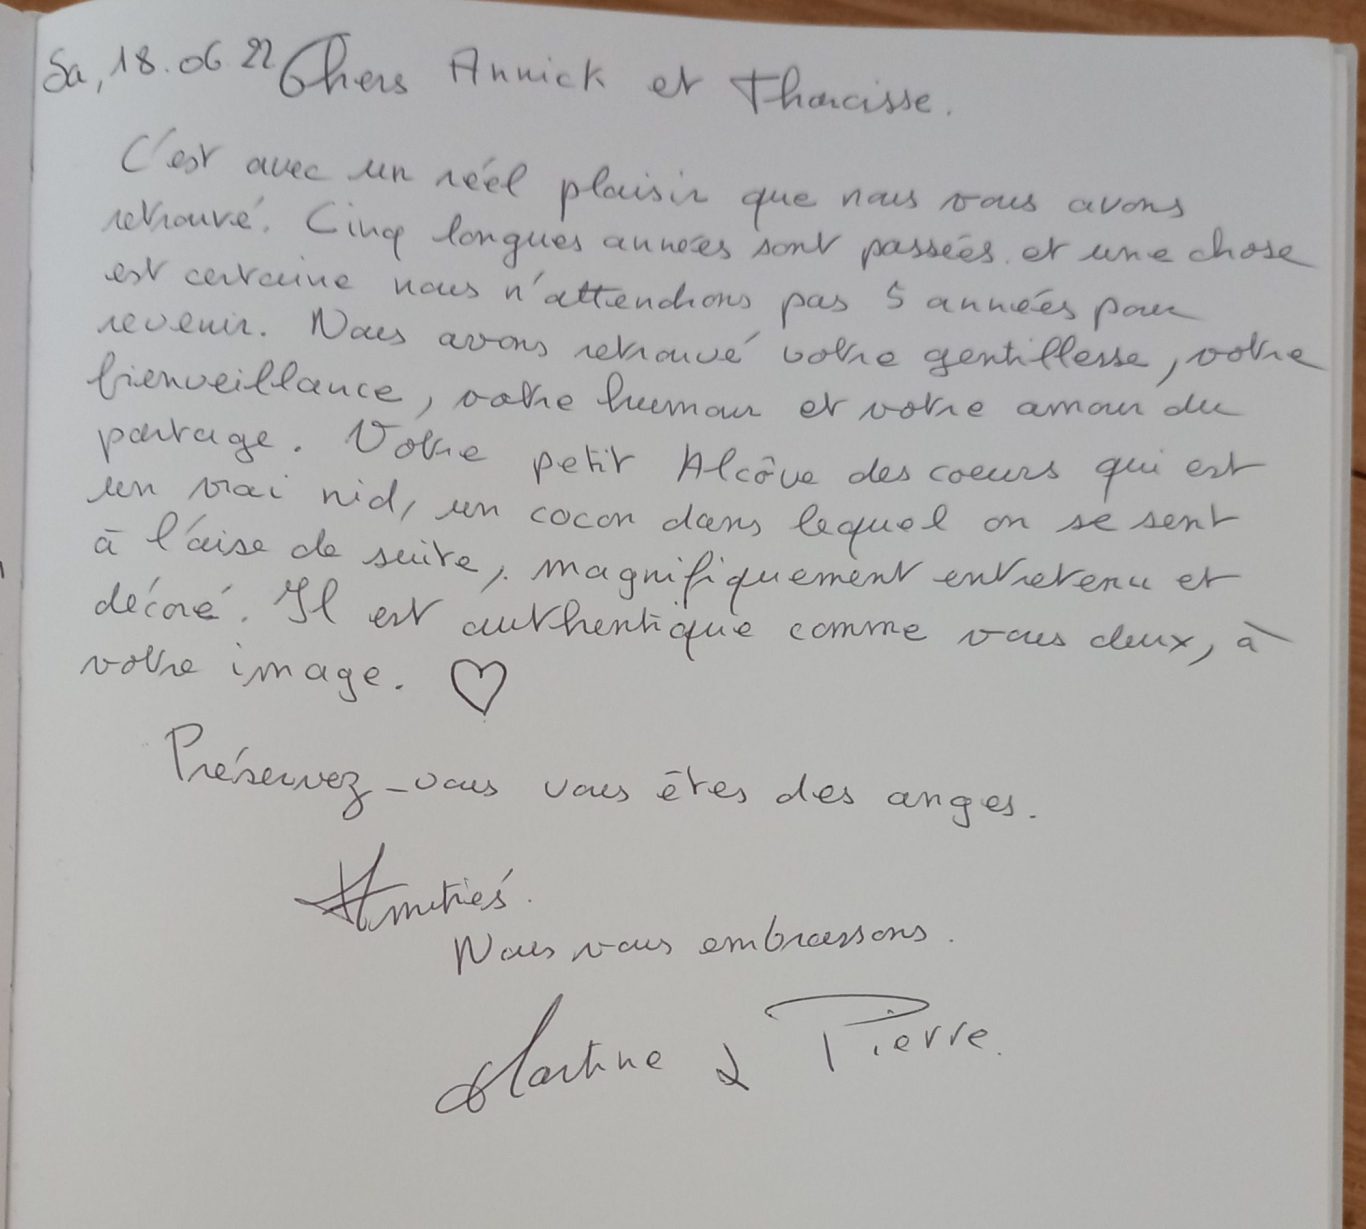 Sa, 18.06 22 Chers Annick et Tharcisse.
C'est avec un réel plaisir que nous vous avons
retrouvé. Cinq longues années sont passées et une chose
est certaine nous n'attendrons pas 5 années pour
revenir. Nous avons retrouvé votre gentillesse, votre
bienveillance, votre humour et votre amour du
partage. Votre petit Alcôve des coeurs qui est
un vrai nid, un cocon dans lequel on se sent
à l'aise de suite, magnifiquement entretenu et
décoré. Il est authentique comme vous deux, à
votre image. ♡
Préservez-vous vous êtes des anges.
Amitiés.
Nous vous embrassons.
Martine & Pierre.